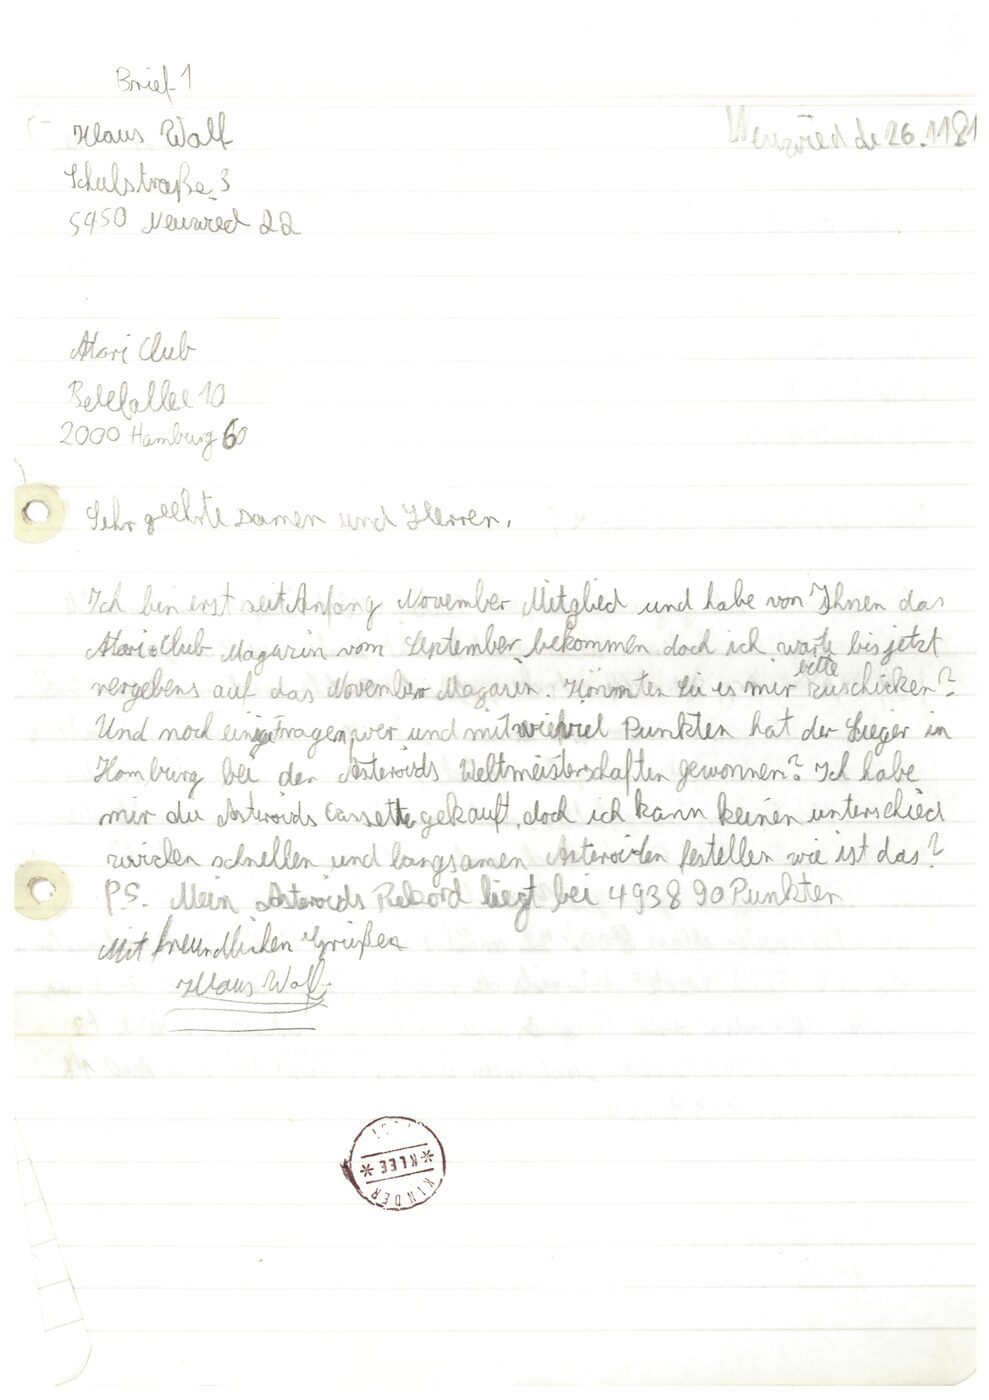 Brief 1
Klaus Wolf
Neuwied de 26.11 81
Schulstraße 3
5450 Neuwied 22
Atari Club
Bebelallee 10
2000 Hamburg 60
Sehr geehrte Damen und Herren,
Ich bin erst seit Anfang November Mitglied und habe von Ihnen das
Atari Club Magazin vom September bekommen doch ich warte bis jetzt
vergebens auf das November Magazin. Könnten Sie es mir bitte zuschicken?
Und noch einige fragen, wer und mit wieviel Punkten hat der Sieger in
Hamburg bei den Asteroids Weltmeisterschaften gewonnen? Ich habe
mir die Asteroids Cassette gekauft, doch ich kann keinen unterschied
zwichen schnellen und langsamen Asteroiden festellen wie ist das?
P.S. Mein Asteroids Rekord liegt bei 4938 90 Punkten
Mit freundlichen Grüßen
Klaus Wolf
KINDER
* KLEE *